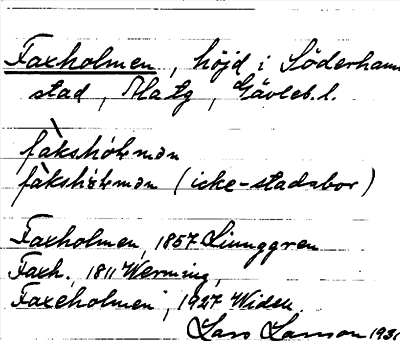 Faxholmen, höjd i Söderhamn
stad, Hlatg, Gävleb.l.
fàkshólmən
fàkshólmən (icke-stadsbor)
Faxholmen, 1857 Ljunggren
Faxh. 1811 Werming,
Faxeholmen, 1927 Widén
Lars Larsson 1931